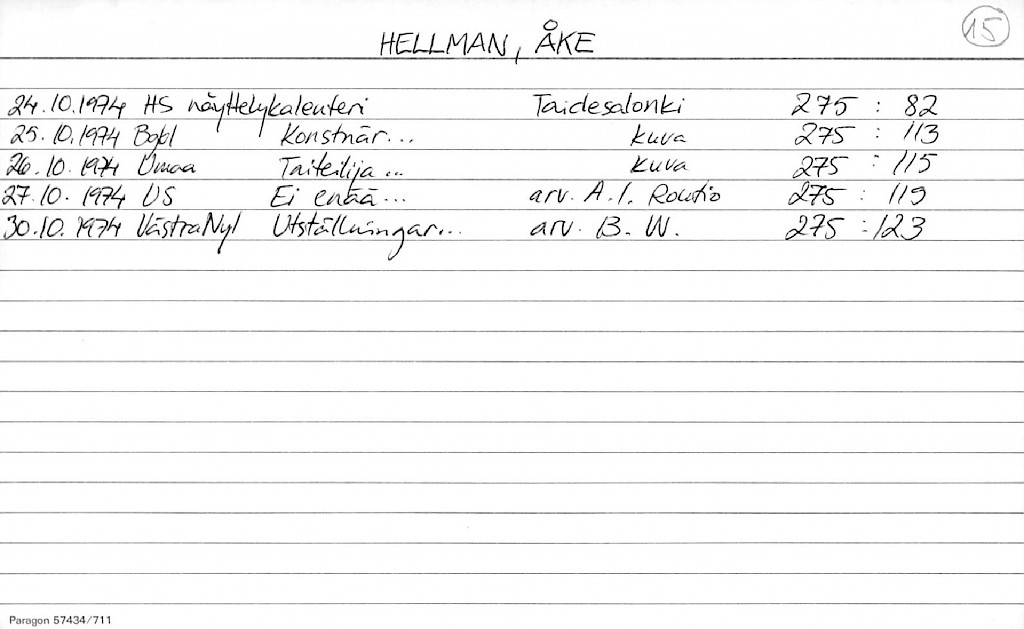 15
HELLMAN, ÅKE
24.10.1974 HS näyttelykalenteri Taidesalonki 275 : 82
25.10.1974 Bobl Konstnär... kuva 275 : 113
26.10.1974 Umaa Taiteilija... kuva 275 : 115
27.10.1974 US Ei enää... arv. A.I. Routio 275 : 119
30.10.1974 VästraNyl Utställningar... arv. B. W. 275 : 123
Paragon 57434/711